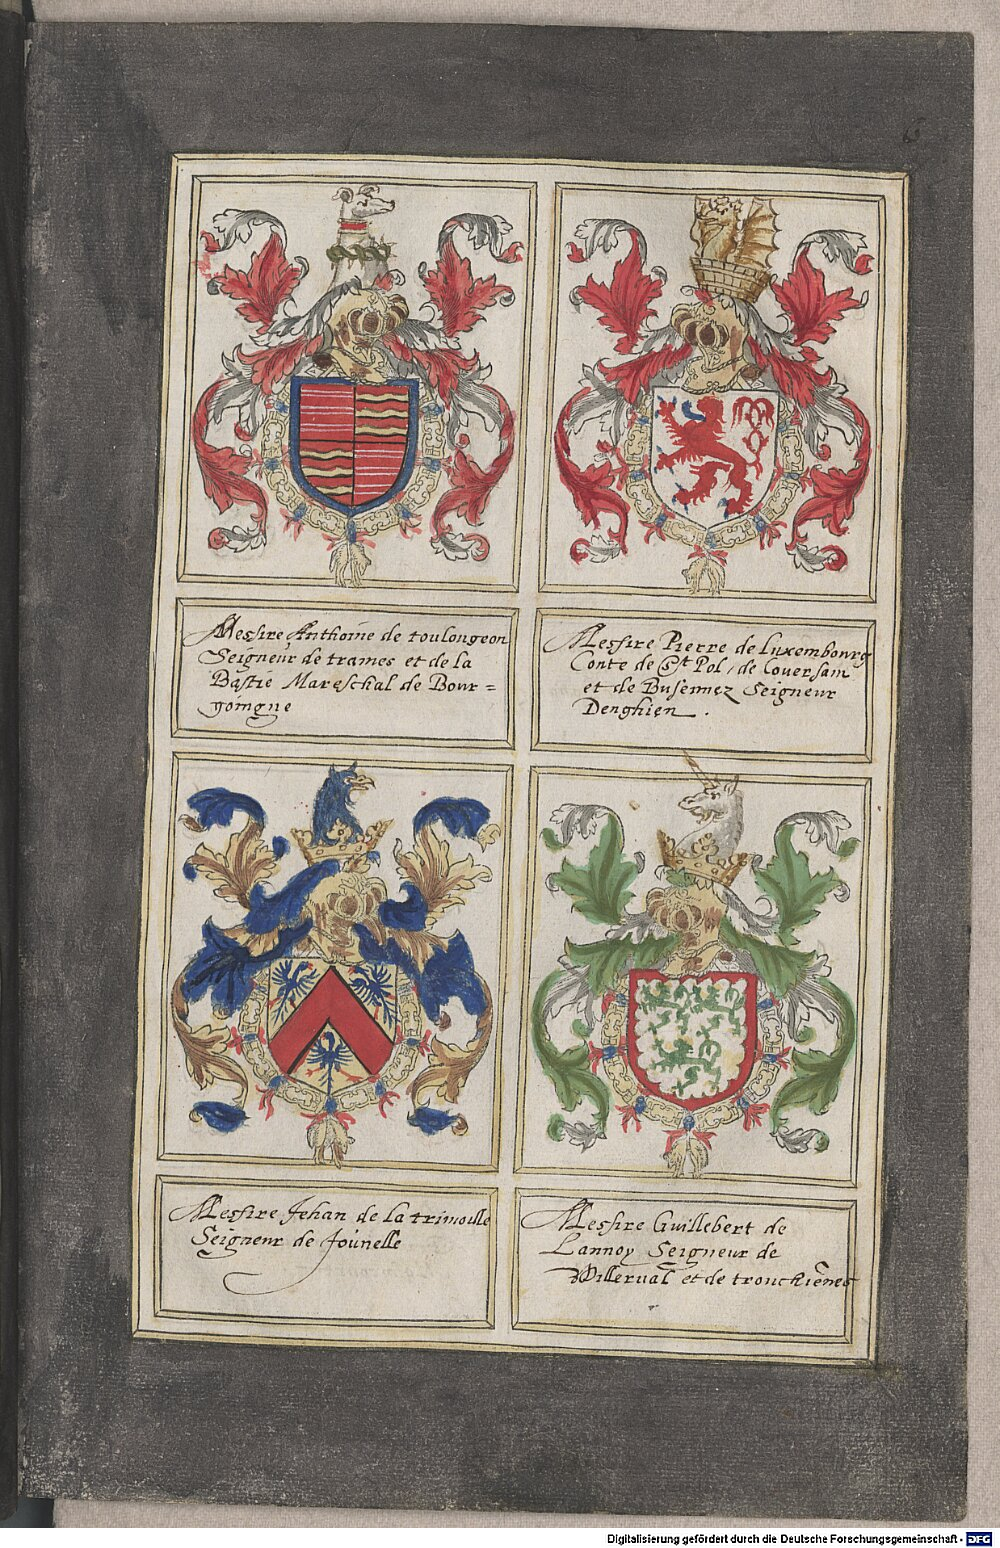 6
Messire Anthoine de toulongeon
Seigneur de trames et de la
Bastie Mareschal de Bour=
goingne
Messire Pierre de Luxembourg
Conte de St Pol, de Couersam
et de Busennez Seigneur
Denghien.
Messire Jehan de la trimoille
Seigneur de Jounelle
Messire Guillebert de
Lannoy Seigneur de
Willerval et de tronchiēnes
Digitalisierung gefördert durch die Deutsche Forschungsgemeinschaft - DFG